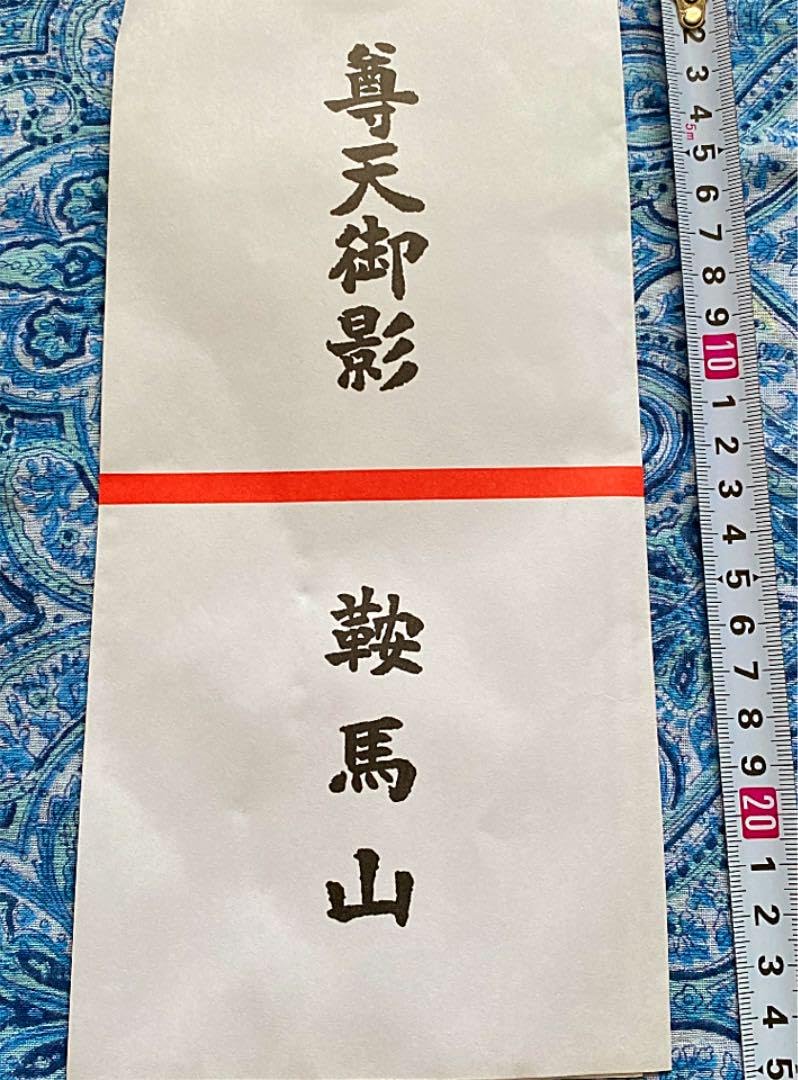 尊天御影
鞍馬山
2
3
4
5m
5
6
7
8
9
10
1
2
3
4
5
6
7
8
9
20
1
2
3
4
5